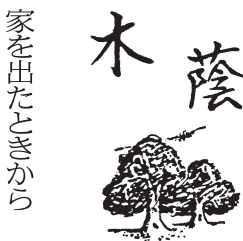 木蔭
家を出たときから